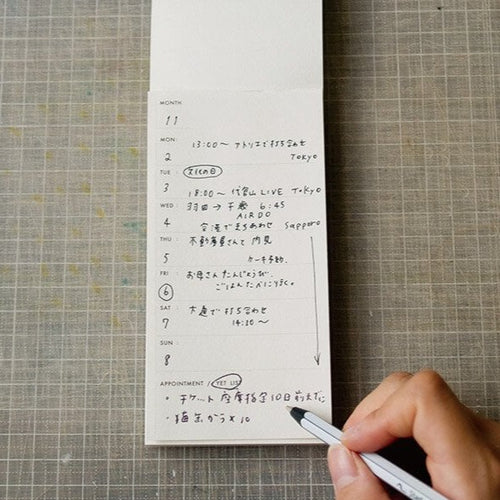 MONTH
11
MON:
13:00〜 アトリエで打ち合わせ
2
TOKYO
TUE :
文化の日
3
18:00〜 LIVE TOKYO
WED :
羽田→千歳 6:45
AIRDO
4
空港で待ちあわせ Sapporo
THU :
不動産屋さんと 内見
5
ケーキ予約.
FRI :
お母さんたんじょうび.
6
ごはんたべに行く。
SAT :
大通で打ち合わせ
7
14:30〜
SUN :
8
APPOINTMENT / YET LIST
・チケット 座席指定 10日前までに
・猫缶かう×10